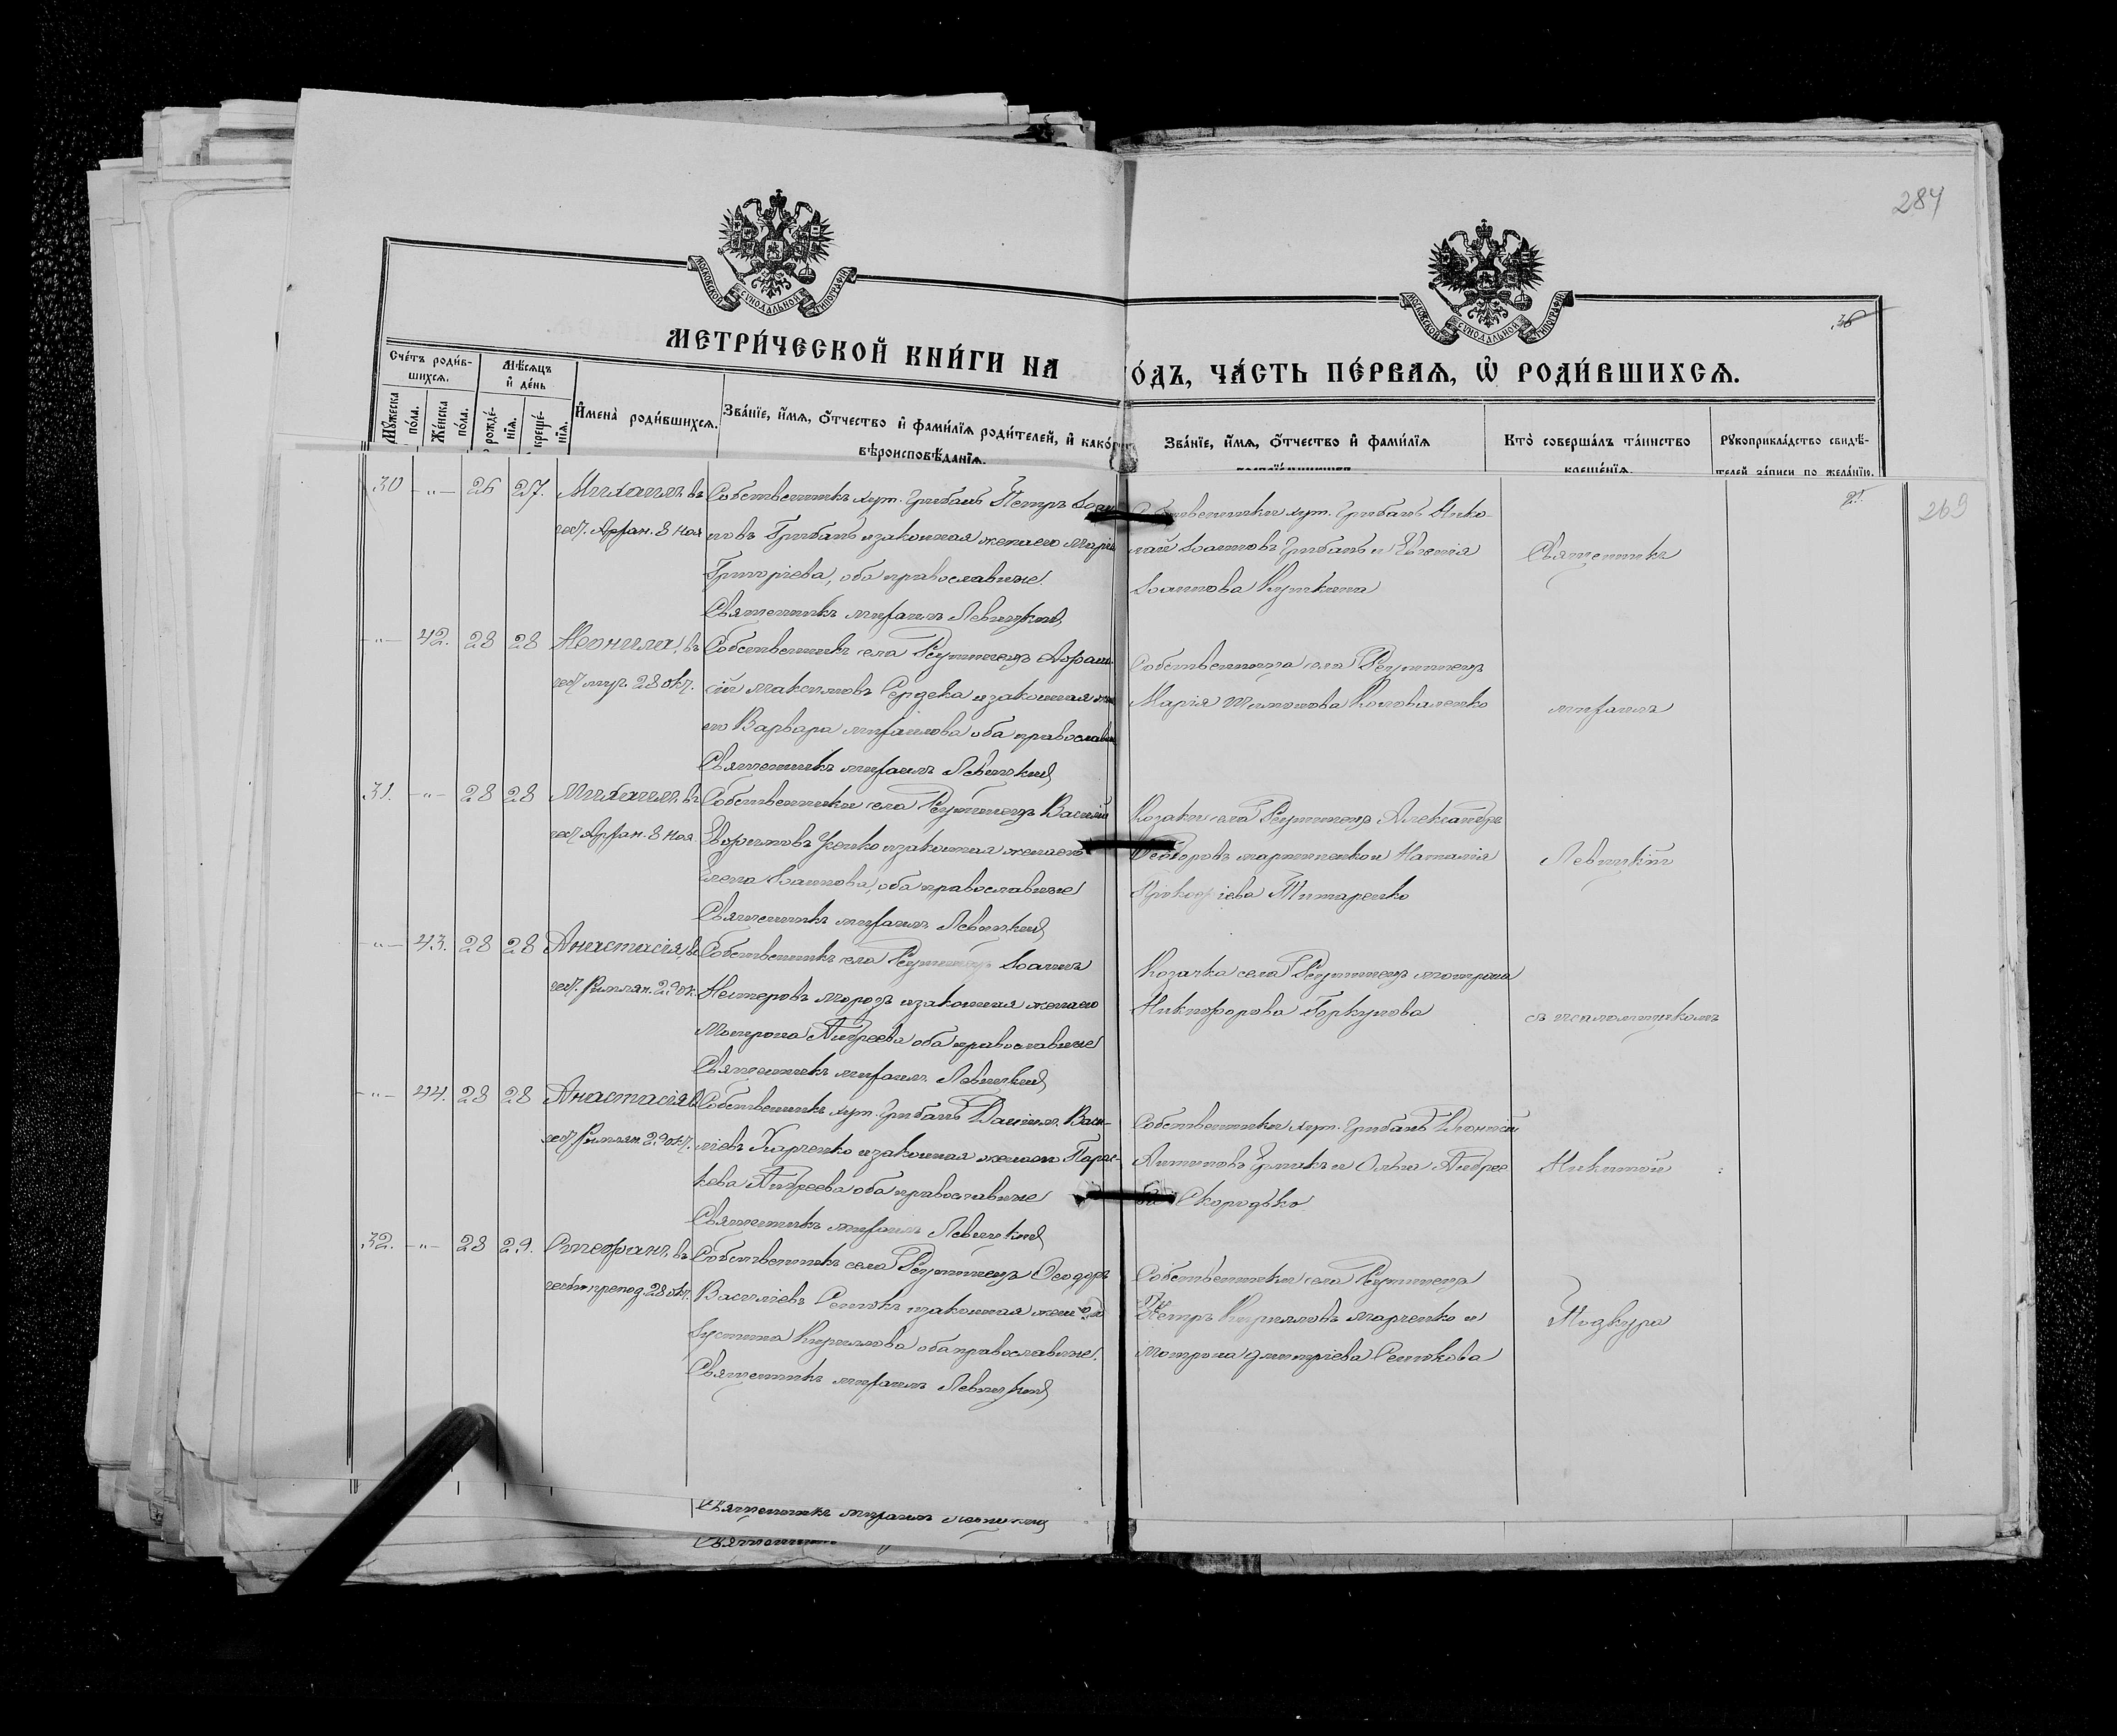 284
МОСКОВСКОЙ СѴНОДАЛЬНОЙ ТИПОГРАФІИ
МОСКОВСКОЙ СѴНОДАЛЬНОЙ ТИПОГРАФІИ
36
МЕТРИ́ЧЕСКОЙ КНИ́ГИ НА
ГО́ДЪ, ЧА́СТЬ ПЕ́РВАѦ, Ѡ҆ РОДИ́ВШИХСѦ.
Сче́тъ роди́в-
шихсѧ.
Мѣ́сѧцъ
и҆ де́нь
Мꙋ́жеска
по́ла.
Же́нска
по́ла.
рожде́-
нїѧ.
креще́-
нїѧ.
И҆мена̀ роди́вшихсѧ.
Зва́нїе, и҆́мѧ, ѻ҆́тчество и҆ фами́лїѧ роди́телей, и҆ како́гѡ
вѣроисповѣ́данїѧ.
Зва́нїе, и҆́мѧ, ѻ҆́тчество и҆ фами́лїѧ
Кто̀ соверша́лъ та́инство
креще́нїѧ.
Рꙋкоприкла́дство свидѣ́-
телей за́писи по жела́нїю.
269
30 -"- 26 27. Михаилъ, въ
чест. Архан. 8 ноя
Собственникъ хут. Грибанъ Петръ Іоан
новъ Грибанъ и законная жена его Марія
Григоріева, оба православные.
Священникъ Михаилъ Левицкій
Собственники хут. Грибанъ Нико-
лай Іоанновъ Грибанъ и Евгенія
Іоаннова
Священникъ
-"- 42. 28 28 Неонила, въ
чест муч. 28 окт.
Собственникъ села Реутинецъ Афана-
сій Максимовъ Середека и законная жена
его Варвара Михаилова оба православные
Священникъ Михаилъ Левицкій
Собственница села Реутинецъ
Марія Коноваленко
Михаилъ
31. -"- 28 28 Михаилъ, въ
чест Архан. 8 ноя
Собственники села Реутинецъ Василій
Евфимовъ и законная жена его
Елена Іоаннова, оба православные
Священникъ Михаилъ Левицкій
Козаки села Реутинецъ Александръ
Феодоровъ Мартиненко и Наталія
Прокофіева Титаренко
Левицкій
-"- 43. 28 28 Анастасія, въ
чест. Римлян. 29 ок.
Собственникъ села Реутинецъ Іоаннъ
Нестеровъ Морозъ и законная жена его
Мотрона Андреева оба православные
Священникъ Михаилъ Левицкій
Козачка села Реутинецъ Мотрона
Никифорова Горкунова
съ псаломщикомъ
-"- 44. 28 28 Анастасія въ
чест. Римлян. 29 окт.
Собственникъ хут. Грибанъ Даниилъ Васи-
ліевъ Харченко и законная жена его Парас-
кева Андреева оба православные
Священникъ Михаилъ Левицкій
Собственники хут. Грибанъ Леонтій
Антиповъ Ермакъ и Ольга Андрее
ва Скородько
Никитою
32. -"- 28 29. Стефанъ, въ
честь препод. 28 окт.
Собственникъ села Реутинецъ Феодоръ
Василіевъ Сенокъ и законная жена его
Іустина Кириллова оба православные.
Священникъ Михаилъ Левицкій
Собственники села Реутинецъ
Петръ Кирилловъ Марченко и
Мотрона Димитріева Сенькова
Подкура
Священникъ Михаилъ Левицкій